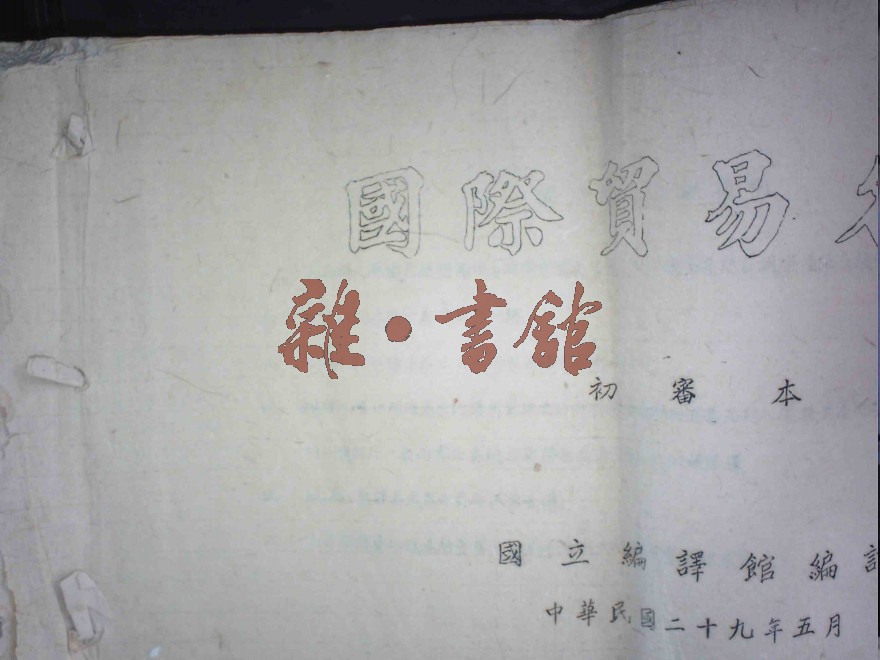 國際貿易
雜·書館
初審本
國立編譯館編
中華民國二十九年五月